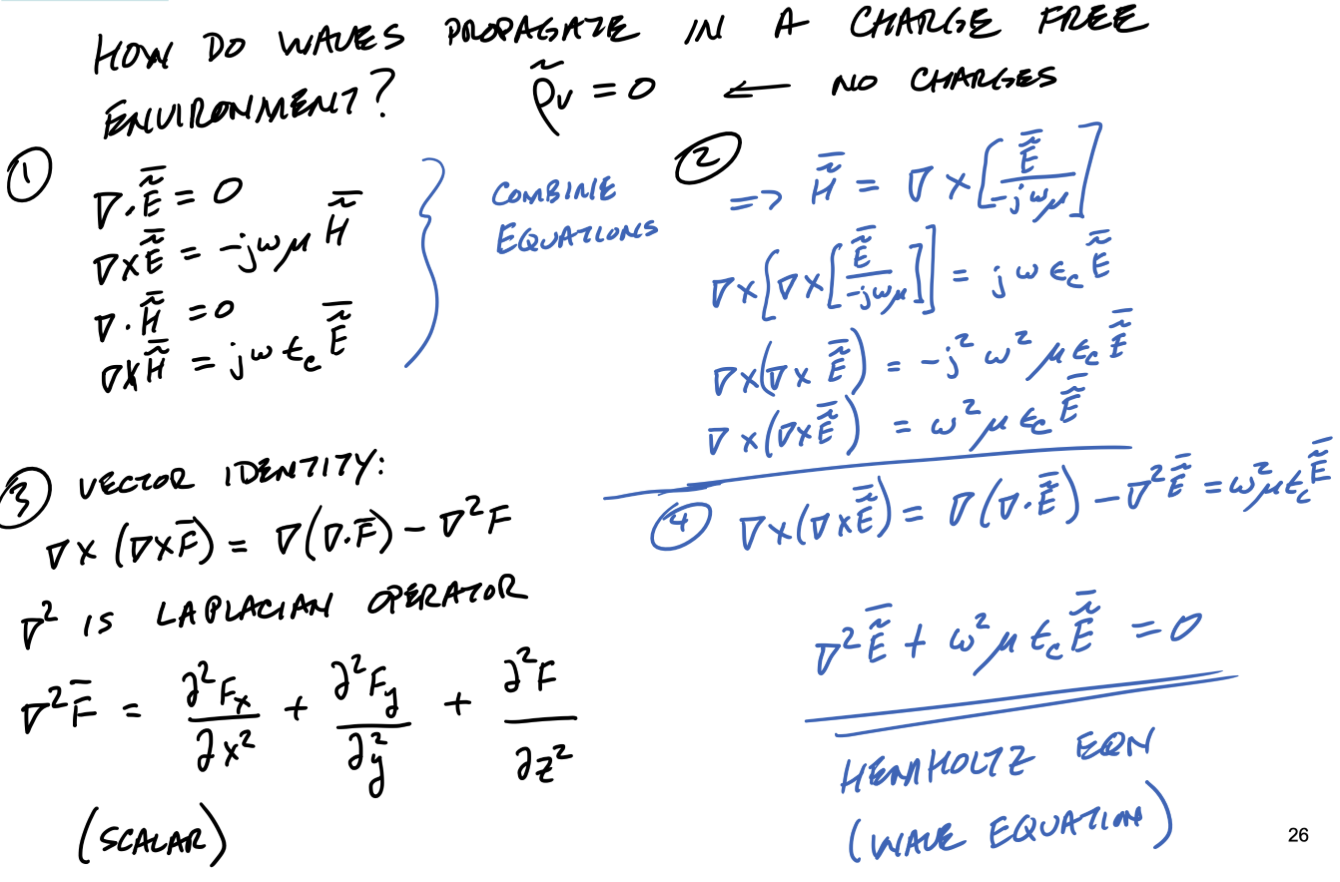 HOW DO WAVES PROPAGATE IN A CHARGE FREE
ENVIRONMENT? ρ̃v = 0 ← NO CHARGES
①
∇·Ẽ̅ = 0
∇×Ẽ̅ = -jωμ H̅
∇·H̃̅ = 0
∇×H̃̅ = jωϵc Ẽ̅
} COMBINE
EQUATIONS
②
=> H̃̅ = ∇×[Ẽ̅/-jωμ]
∇×[∇×[Ẽ̅/-jωμ]] = jωϵc Ẽ̅
∇×(∇×Ẽ̅) = -j²ω²μϵc Ẽ̅
∇×(∇×Ẽ̅) = ω²μϵc Ẽ̅
③ VECTOR IDENTITY:
∇×(∇×F̅) = ∇(∇·F̅) - ∇²F
∇² IS LAPLACIAN OPERATOR
∇²F̅ = ∂²Fx/∂x² + ∂²Fy/∂y² + ∂²F/∂z²
(SCALAR)
④ ∇×(∇×Ẽ̅) = ∇(∇·Ẽ̅) - ∇²Ẽ̅ = ω²μϵcẼ̅
∇²Ẽ̅ + ω²μϵcẼ̅ = 0
HEMHOLTZ EQN
(WAVE EQUATION)
26